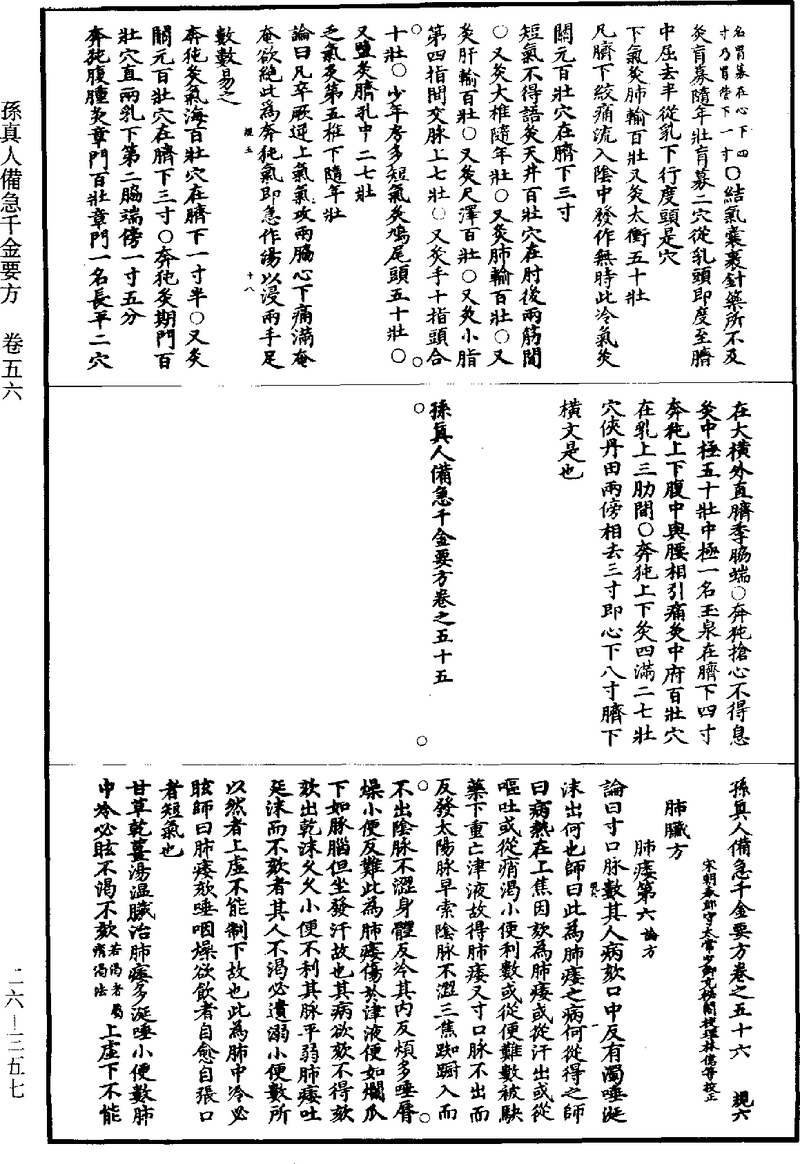 孫真人備急千金要方　卷五六
二六—三五七
名胃募在心下四
寸乃胃管下一寸〇結氣囊裹針藥所不及
灸肓募隨年壯肓募二穴從乳頭即度至臍
中屈去半從乳下行度頭是穴
下氣灸肺輸百壯又灸太衝五十壯
凡臍下絞痛流入陰中發作無時此冷氣灸
關元百壯穴在臍下三寸
短氣不得語灸天井百壯穴在肘後兩筋間
〇又灸大椎隨年壯〇又灸肺輸百壯〇又
灸肝輸百壯〇又灸尺澤百壯〇又灸小指
第四指間交脉上七壯〇又灸手十指頭合
十壯〇少年房多短氣灸鳩尾頭五十壯〇
又鹽灸臍孔中二七壯
乏氣灸第五椎下隨年壯
論曰凡卒厥逆上氣氣攻兩脇心下痛滿奄
奄欲絕此為奔㹠氣即急作湯以浸兩手足
數數易之
奔㹠灸氣海百壯穴在臍下一寸半〇又灸
關元百壯穴在臍下三寸〇奔㹠灸期門百
壯穴直兩乳下第二脇端傍一寸五分
奔㹠腹腫灸章門百壯章門一名長平二穴
在大橫外直臍季脇端〇奔㹠搶心不得息
灸中極五十壯中極一名玉泉在臍下四寸
奔㹠上下腹中與腰相引痛灸中府百壯穴
在乳上三肋間〇奔㹠上下灸四滿二七壯
穴俠丹田兩傍相去三寸即心下八寸臍下
橫文是也
孫真人備急千金要方卷之五十五
孫真人備急千金要方卷之五十六　覲六
宋朝奉郎守太常少卿充秘閣校理林億等校正
肺臟方
肺痿第六論方
論曰寸口脉數其人病欬口中反有濁唾涎
沫出何也師曰此為肺痿之病何從得之師
曰病熱在上焦因欬為肺痿或從汗出或從
嘔吐或從痟渴小便利數或從便難數被駃
藥下重亡津液故得肺痿又寸口脉不出而
反發太陽脉早索陰脉不澀三焦踟躕入而
不出陰脉不澀身體反冷其內反煩多唾唇
燥小便反難此為肺痿傷於津液便如爛瓜
下如豚腦但坐發汗故也其病欲欬不得欬
欬出乾沫久久小便不利其脉平弱肺痿吐
涎沫而不欬者其人不渴必遺溺小便數所
以然者上虛不能制下故也此為肺中冷必
眩師曰肺痿欬唾咽燥欲飲者自愈自張口
者短氣也
甘草乾薑湯溫臟治肺痿多涎唾小便數肺
中冷必眩不渴不欬若渴者屬痟渴法上虛下不能